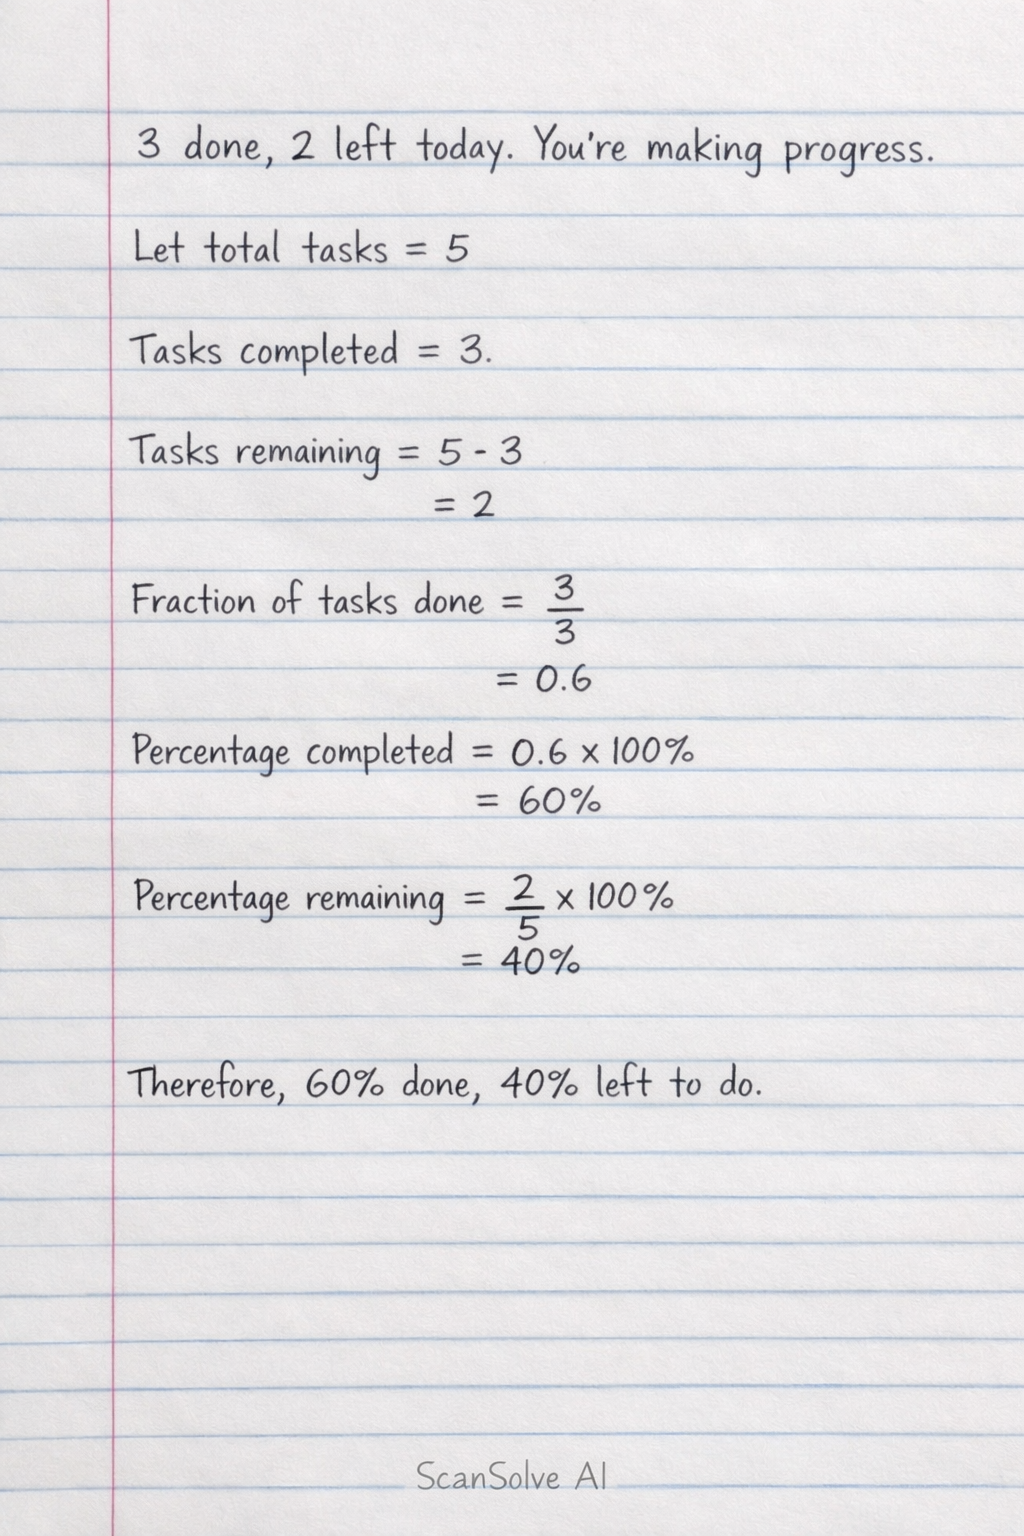 3 done, 2 left today. You're making progress.
Let total tasks = 5
Tasks completed = 3.
Tasks remaining = 5 - 3
= 2
Fraction of tasks done = 3/3
= 0.6
Percentage completed = 0.6 x 100%
= 60%
Percentage remaining = 2/5 x 100%
= 40%
Therefore, 60% done, 40% left to do.
ScanSolve AI